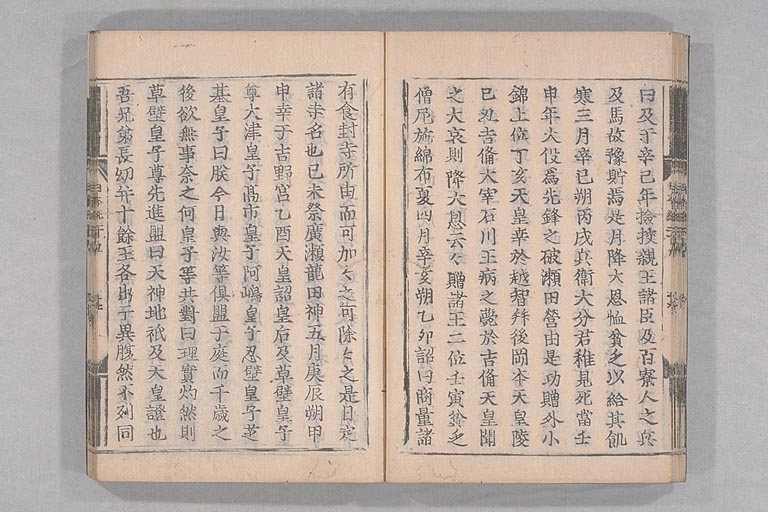 曰及于辛巳年檢挍親王諸臣及百寮人之兵
及馬故豫貯焉是月降大恩恤貧乏以給其飢
寒三月辛巳朔丙戌兵衛大分君稚見死當壬
申年大役為先鋒之破瀬田營由是功贈外小
錦上位丁亥天皇幸於越智拜後岡本天皇陵
己丑吉備大宰石川王病之薨於吉備天皇聞
之大哀則降大恩云々贈諸王二位壬寅貧乏
僧尼施綿布夏四月辛亥朔乙卯詔曰商量諸
有食封寺所由而可加々之可除々之是日定
諸寺名也己未祭廣瀬龍田神五月庚辰朔甲
申幸于吉野宮乙酉天皇詔皇后及草壁皇子
尊大津皇子髙市皇子阿嶋皇子忍壁皇子芝
基皇子曰朕今日與汝等倶盟于庭而千歳之
後欲無事奈之何皇子等共對曰理實灼然則
草壁皇子尊先進盟曰天神地祇及天皇證也
吾兄弟長幼并十餘王各出于異腹然不別同